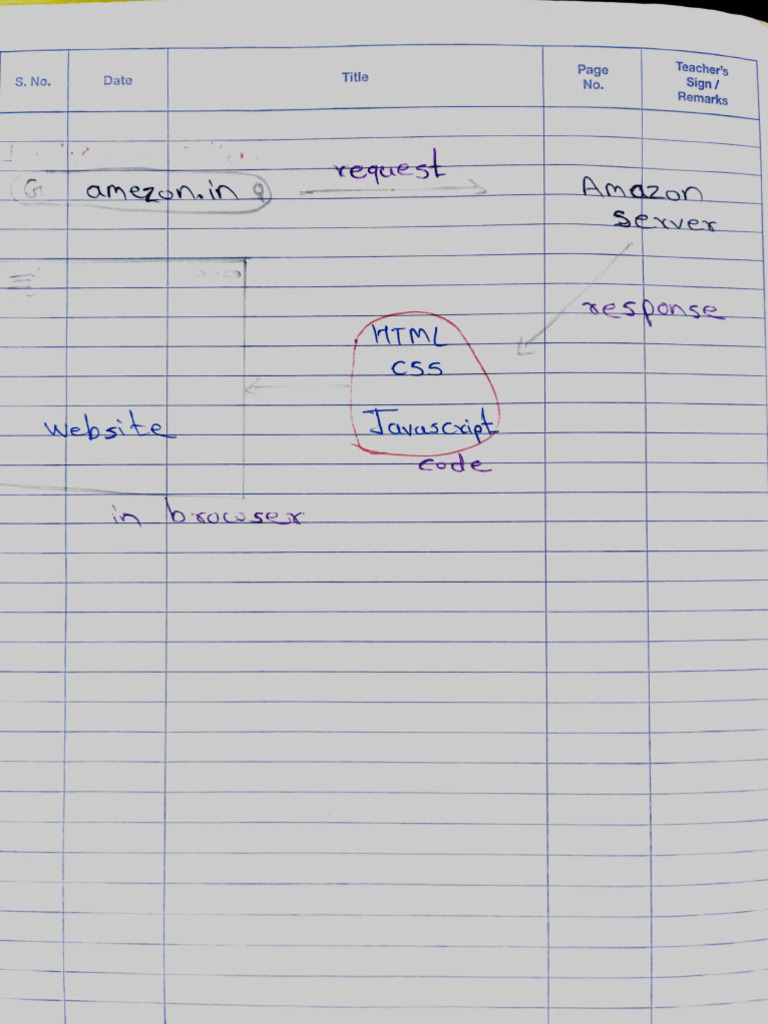 S. No. Date Title Page No. Teacher's Sign / Remarks
request
G amezon.in
Amazon
server
response
HTML
CSS
Javascript
code
website
in browser